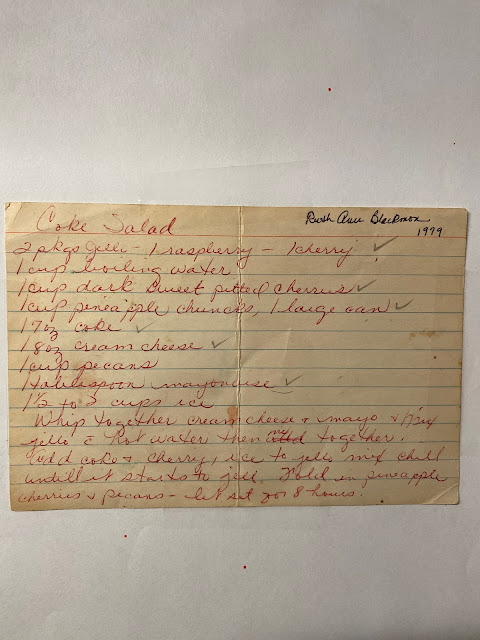 Coke Salad
Ruth Ann Blackmon
1979
2 pkgs Jello - 1 raspberry - 1 cherry ✓
1 cup boiling water
1 cup dark sweet pitted cherries ✓
1 cup pineapple chuncks, 1 large can ✓
1 7oz coke ✓
1 8oz cream cheese ✓
1 cup pecans
1 tablespoon mayonaise ✓
1½ to 2 cups ice
Whip together cream cheese & mayo & mix
jello & hot water then together.
Add coke & cherry, ice to jello mix chill
untill it starts to jell. Fold in pineapple
cherries & pecans - let set 7 or 8 hours.